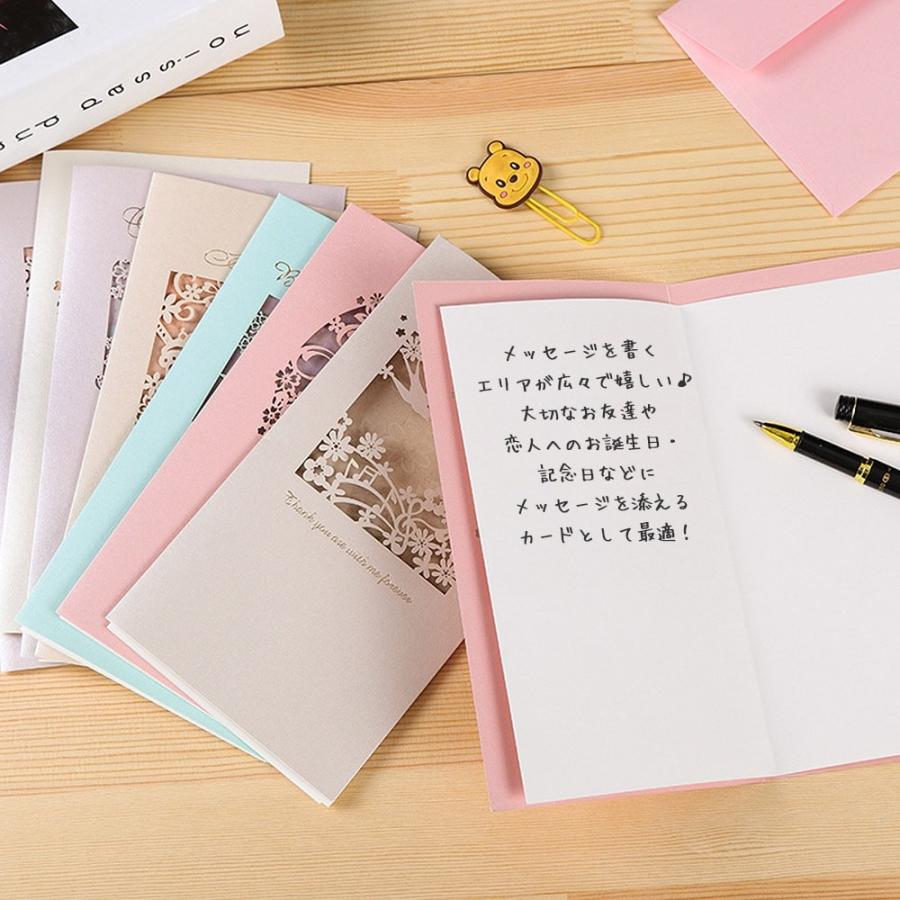 メッセージを書く
エリアが広々で嬉しい♪
大切なお友達や
恋人へのお誕生日・
記念日などに
メッセージを添える
カードとして最適！
Thank you are with me forever